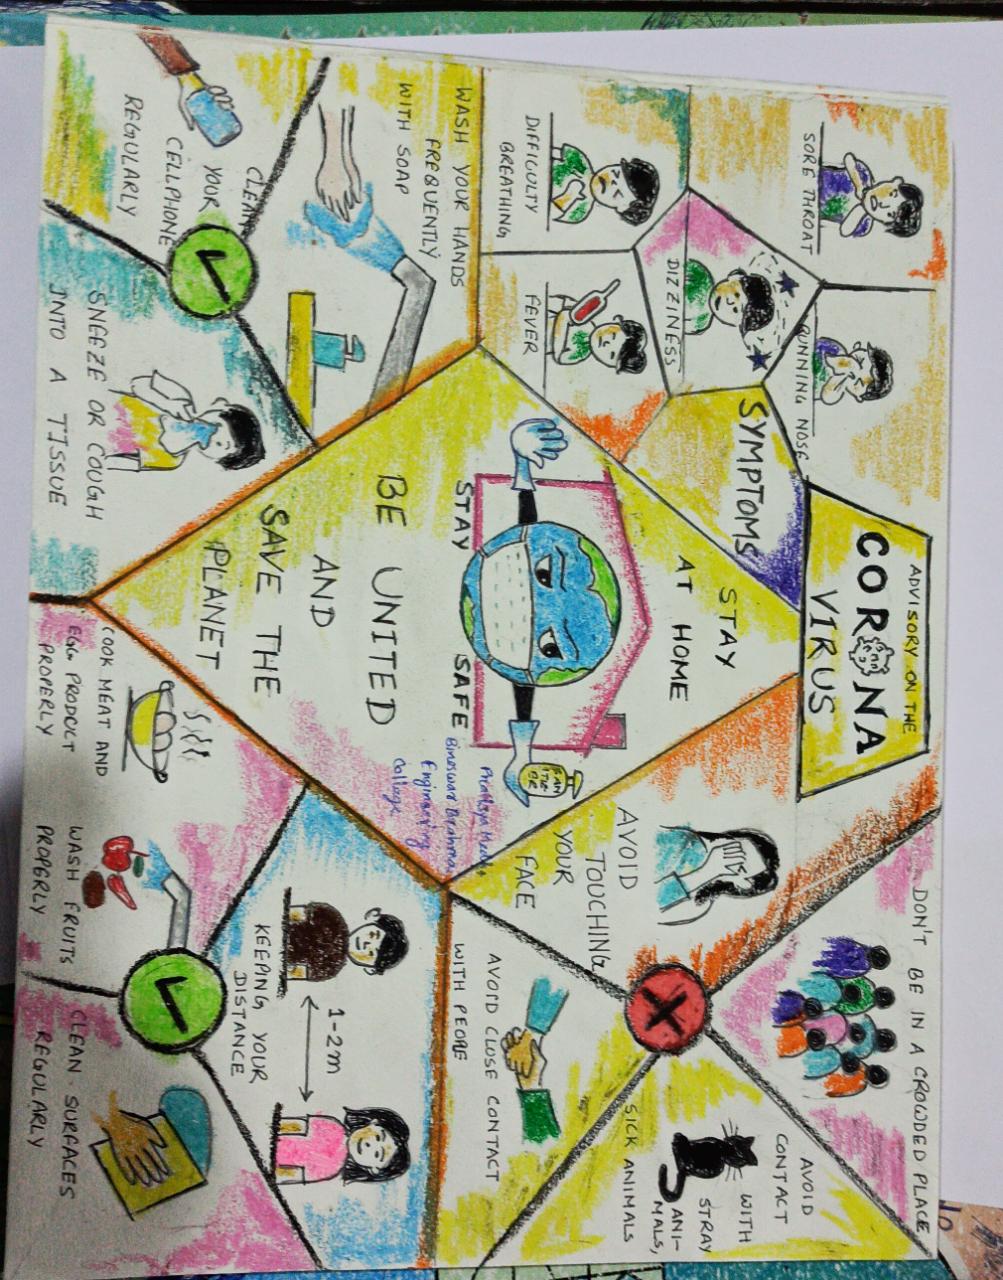 ADVISORY ON THE
CORONA
VIRUS
SORE THROAT
RUNNING NOSE
DIZZINESS
DIFFICULTY
BREATHING
FEVER
SYMPTOMS
WASH YOUR HANDS
FREQUENTLY
WITH SOAP
CLEAN
YOUR
CELLPHONE
REGULARLY
SNEEZE OR COUGH
INTO A TISSUE
STAY
AT HOME
STAY SAFE
BE UNITED
AND
SAVE THE
PLANET
Bineswar Brahma
Engineering
College
AVOID
TOUCHING
YOUR
FACE
DON'T BE IN A CROWDED PLACE
AVOID
CONTACT
WITH
STRAY
ANI-
MALS,
SICK ANIMALS
AVOID CLOSE CONTACT
WITH PEOPLE
1-2m
KEEPING YOUR
DISTANCE
COOK MEAT AND
EGG
PROPERLY
WASH FRUITS
PROPERLY
CLEAN SURFACES
REGULARLY